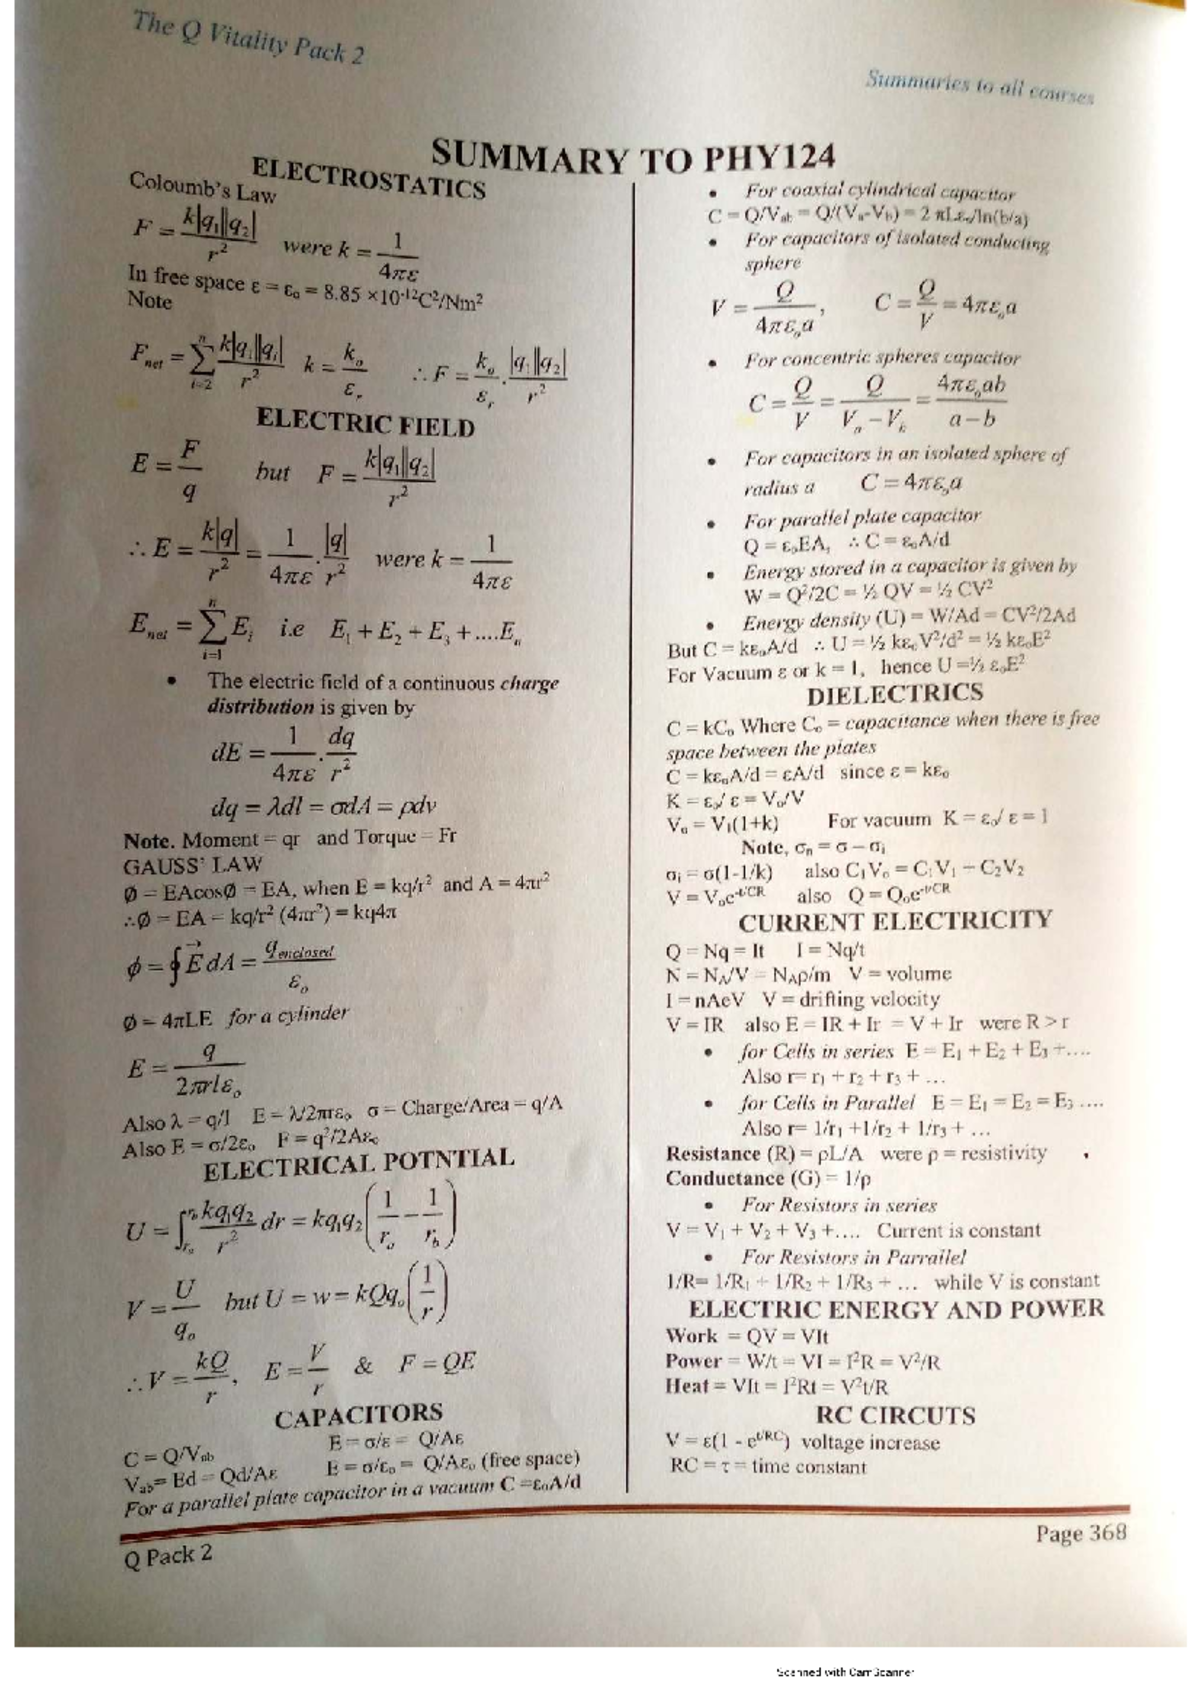 The Q Vitality Pack 2
Summaries to all courses
SUMMARY TO PHY124
ELECTROSTATICS
Coloumb's Law
F = k|q₁||q₂| / r² were k = 1 / 4πε
In free space ε = εₒ = 8.85 ×10⁻¹²C²/Nm²
Note
F_net = Σ_{i=2}^{n} k|q₁||qᵢ| / r² k = kₒ / εᵣ ∴ F = kₒ / εᵣ . |q₁||q₂| / r²
ELECTRIC FIELD
E = F / q but F = k|q₁||q₂| / r²
∴ E = k|q| / r² = 1 / 4πε . |q| / r² were k = 1 / 4πε
E_net = Σ_{i=1}^{n} Eᵢ i.e E₁ + E₂ + E₃ + ....Eₙ
• The electric field of a continuous charge
distribution is given by
dE = 1 / 4πε . dq / r²
dq = λdl = σdA = ρdv
Note. Moment = qr and Torque = Fr
GAUSS' LAW
Ø = EAcosØ = EA, when E = kq/r² and A = 4πr²
∴Ø = EA = kq/r² (4πr²) = kq4π
ϕ = ∮ E⃗ dA = q_enclosed / εₒ
Ø = 4πLE for a cylinder
E = q / 2πrlεₒ
Also λ = q/l E = λ/2πrεₒ σ = Charge/Area = q/A
Also E = σ/2εₒ F = q²/2Aεₒ
ELECTRICAL POTNTIAL
U = ∫_{rₐ}^{r_b} kq₁q₂ / r² dr = kq₁q₂ (1 / rₐ − 1 / r_b)
V = U / qₒ but U = w = kQqₒ (1 / r)
∴ V = kQ / r, E = V / r & F = QE
CAPACITORS
C = Q/V_ab E = σ/ε = Q/Aε
V_ab= Ed = Qd/Aε E = σ/εₒ = Q/Aεₒ (free space)
For a parallel plate capacitor in a vacuum C =εₒA/d
• For coaxial cylindrical capacitor
C = Q/V_ab = Q/(Vₐ-V_b) = 2 πLεₒ/ln(b/a)
• For capacitors of isolated conducting
sphere
V = Q / 4πεₒa, C = Q / V = 4πεₒa
• For concentric spheres capacitor
C = Q / V = Q / Vₐ − V_b = 4πεₒab / a − b
• For capacitors in an isolated sphere of
radius a C = 4πεₒa
• For parallel plate capacitor
Q = εₒEA, ∴ C = εₒA/d
• Energy stored in a capacitor is given by
W = Q²/2C = ½ QV = ½ CV²
• Energy density (U) = W/Ad = CV²/2Ad
But C = kεₒA/d ∴ U = ½ kεₒV²/d² = ½ kεₒE²
For Vacuum ε or k = 1, hence U =½ εₒE²
DIELECTRICS
C = kCₒ Where Cₒ = capacitance when there is free
space between the plates
C = kεₒA/d = εA/d since ε = kεₒ
K = εₒ/ ε = Vₒ/V
Vₒ = V₁(1+k) For vacuum K = εₒ/ ε = 1
Note, σₙ = σ – σᵢ
σᵢ = σ(1-1/k) also C₁Vₒ = C₁V₁ – C₂V₂
V = Vₒe^-t/CR also Q = Qₒe^-t/CR
CURRENT ELECTRICITY
Q = Nq = It I = Nq/t
N = N_A/V = N_Aρ/m V = volume
I = nAeV V = drifting velocity
V = IR also E = IR + Ir = V + Ir were R > r
• for Cells in series E = E₁ + E₂ + E₃ +….
Also r= r₁ + r₂ + r₃ + …
• for Cells in Parallel E = E₁ = E₂ = E₃ ….
Also r= 1/r₁ +1/r₂ + 1/r₃ + …
Resistance (R) = ρL/A were ρ = resistivity
Conductance (G) = 1/ρ
• For Resistors in series
V = V₁ + V₂ + V₃ +…. Current is constant
• For Resistors in Parrallel
1/R= 1/R₁ + 1/R₂ + 1/R₃ + … while V is constant
ELECTRIC ENERGY AND POWER
Work = QV = VIt
Power = W/t = VI = I²R = V²/R
Heat = VIt = I²Rt = V²t/R
RC CIRCUTS
V = ε(1 - e^t/RC) voltage increase
RC = τ = time constant
Q Pack 2
Page 368
Scanned with CamScanner